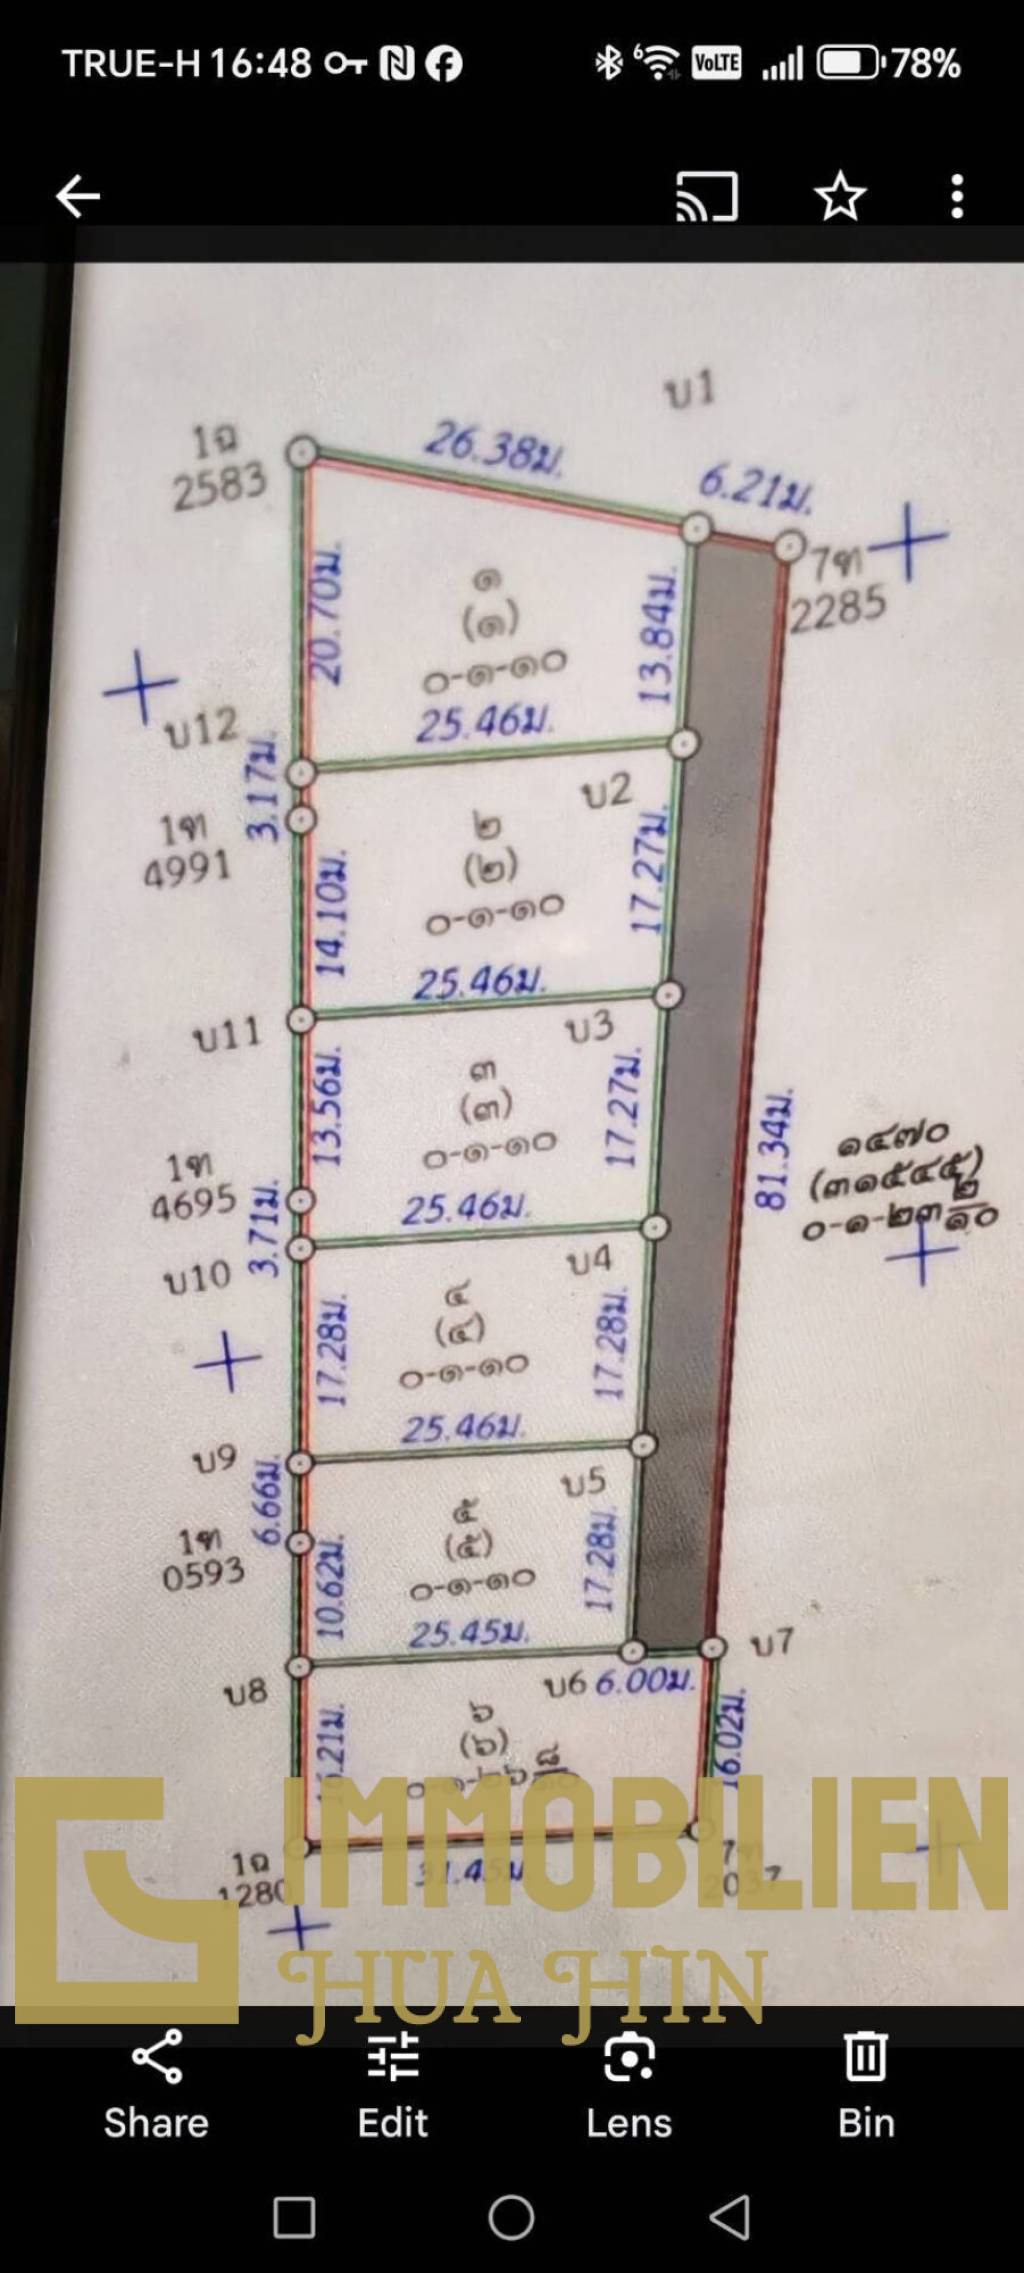 TRUE-H 16:48
6
VoLTE
78%
บ1
1ฉ
2583
26.38ม.
6.21ม.
7ท
2285
20.70ม.
๑
(๑)
๐-๑-๑๐
13.84ม.
25.46ม.
บ12
3.17ม.
1ท
4991
บ2
๒
(๒)
๐-๑-๑๐
14.10ม.
17.27ม.
25.46ม.
บ11
บ3
๓
(๓)
๐-๑-๑๐
13.56ม.
17.27ม.
81.34ม.
๑๔๗๐
(๓๑๕๔๕)
๐-๑-๒๓ ๒/๑๐
1ท
4695
3.71ม.
25.46ม.
บ10
บ4
๔
(๔)
๐-๑-๑๐
17.28ม.
17.28ม.
25.46ม.
บ9
6.66ม.
บ5
1ท
0593
๕
(๕)
๐-๑-๑๐
10.62ม.
17.28ม.
25.45ม.
บ7
บ8
บ6 6.00ม.
๖
(๖)
16.02ม.
31.45ม
1ฉ
1280
7ท
2037
IMMOBILIEN
HUA HIN
Share
Edit
Lens
Bin